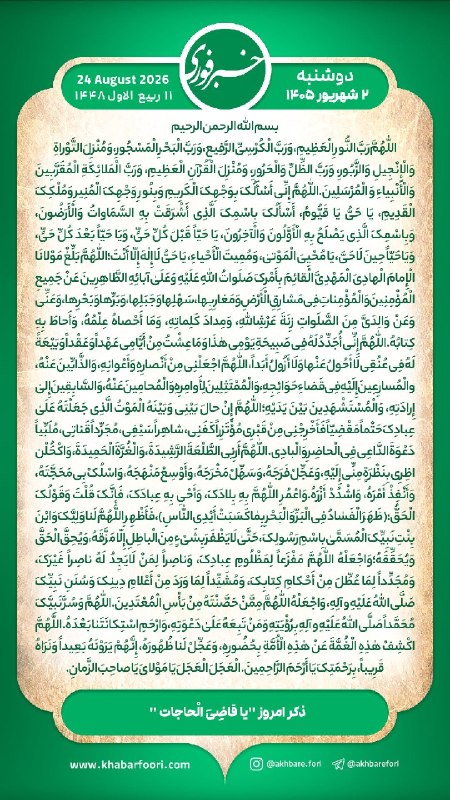 دوشنبه
۲ شهریور ۱۴۰۵
خبرفوری
24 August 2026
۱۱ ربیع الاول ۱۴۴۸
بسم الله الرحمن الرحیم
اللَّهُمَّ رَبَّ النُّورِ الْعَظِیمِ، وَرَبَّ الْکُرْسِیِّ الرَّفِیعِ، وَرَبَّ الْبَحْرِ الْمَسْجُورِ، وَمُنْزِلَ التَّوْراةِ
وَالْإِنْجِیلِ وَالزَّبُورِ، وَرَبَّ الظِّلِّ وَالْحَرُورِ، وَمُنْزِلَ الْقُرْآنِ الْعَظِیمِ، وَرَبَّ الْمَلائِکَةِ الْمُقَرَّبِینَ
وَالْأَنْبِیاءِ وَالْمُرْسَلِینَ. اللَّهُمَّ إِنِّی أَسْأَلُکَ بِوَجْهِکَ الْکَرِیمِ وَبِنُورِ وَجْهِکَ الْمُنِیرِ وَمُلْکِکَ
الْقَدِیمِ، یَا حَیُّ یَا قَیُّومُ، أَسْأَلُکَ بِاسْمِکَ الَّذِی أَشْرَقَتْ بِهِ السَّماواتُ وَالْأَرَضُونَ،
وَبِاسْمِکَ الَّذِی یَصْلَحُ بِهِ الْأَوَّلُونَ وَالْآخِرُونَ، یَا حَیّاً قَبْلَ کُلِّ حَیٍّ، وَیَا حَیّاً بَعْدَ کُلِّ حَیٍّ،
وَیَا حَیّاً حِینَ لَا حَیَّ، یَا مُحْیِیَ الْمَوْتىٰ، وَمُمِیتَ الْأَحْیاءِ، یَا حَیُّ لَاإِلهَ إِلّا أَنْتَ؛ اللَّهُمَّ بَلِّغْ مَوْلانَا
الْإِمامَ الْهادِیَ الْمَهْدِیَّ الْقَائِمَ بِأَمْرِکَ صَلَواتُ اللّٰهِ عَلَیْهِ وَعَلَىٰ آبائِهِ الطَّاهِرِینَ عَنْ جَمِیعِ
الْمُؤْمِنِینَ وَالْمُؤْمِناتِ فِی مَشارِقِ الْأَرْضِ وَمَغارِبِها، سَهْلِها وَجَبَلِها، وَبَرِّها وَبَحْرِها، وَعَنِّی
وَعَنْ وَالِدَیَّ مِنَ الصَّلَواتِ زِنَةَ عَرْشِ اللّٰهِ، وَمِدادَ کَلِماتِهِ، وَمَا أَحْصاهُ عِلْمُهُ، وَأَحاطَ بِهِ
کِتابُهُ. اللَّهُمَّ إِنِّی أُجَدِّدُ لَهُ فِی صَبِیحَةِ یَوْمِی هٰذَا وَمَا عِشْتُ مِنْ أَیَّامِی عَهْداً وَعَقْداً وَبَیْعَةً
لَهُ فِی عُنُقِی لَاأَحُولُ عَنْها وَلَا أَزُولُ أَبَداً، اللَّهُمَّ اجْعَلْنِی مِنْ أَنْصارِهِ وَأَعْوانِهِ، وَالذَّابِّینَ عَنْهُ،
وَالْمُسارِعِینَ إِلَیْهِ فِی قَضاءِ حَوَائِجِهِ، وَالْمُمْتَثِلِینَ لِأَوامِرِهِ وَالْمُحامِینَ عَنْهُ، وَالسَّابِقِینَ إِلىٰ
إِرادَتِهِ، وَالْمُسْتَشْهَدِینَ بَیْنَ یَدَیْهِ؛ اللَّهُمَّ إِنْ حالَ بَیْنِی وَبَیْنَهُ الْمَوْتُ الَّذِی جَعَلْتَهُ عَلَىٰ
عِبادِکَ حَتْماً مَقْضِیّاً فَأَخْرِجْنِی مِنْ قَبْرِی مُؤْتَزِراً کَفَنِی، شاهِراً سَیْفِی، مُجَرِّداً قَناتِی، مُلَبِّیاً
دَعْوَةَ الدَّاعِی فِی الْحاضِرِ وَالْبادِی. اللَّهُمَّ أَرِنِی الطَّلْعَةَ الرَّشِیدَةَ، وَالْغُرَّةَ الْحَمِیدَةَ، وَاکْحُلْ نَ
اظِرِی بِنَظْرَةٍ مِنِّی إِلَیْهِ، وَعَجِّلْ فَرَجَهُ، وَسَهِّلْ مَخْرَجَهُ، وَأَوْسِعْ مَنْهَجَهُ، وَاسْلُکْ بِی مَحَجَّتَهُ،
وَأَنْفِذْ أَمْرَهُ، وَاشْدُدْ أَزْرَهُ، وَاعْمُرِ اللَّهُمَّ بِهِ بِلادَکَ، وَأَحْیِ بِهِ عِبادَکَ، فَإِنَّکَ قُلْتَ وَقَوْلُکَ
الْحَقُّ: (ظَهَرَ الْفَسَادُ فِی الْبَرِّ وَالْبَحْرِ بِمَا کَسَبَتْ أَیْدِی النَّاسِ)، فَأَظْهِرِ اللَّهُمَّ لَنَا وَلِیَّکَ وَابْنَ
بِنْتِ نَبِیِّکَ الْمُسَمَّىٰ بِاسْمِ رَسُولِکَ، حَتَّىٰ لَا یَظْفَرَ بِشَیْءٍ مِنَ الْباطِلِ إِلّا مَزَّقَهُ، وَیُحِقَّ الْحَقَّ
وَیُحَقِّقَهُ؛ وَاجْعَلْهُ اللَّهُمَّ مَفْزَعاً لِمَظْلُومِ عِبادِکَ، وَناصِراً لِمَنْ لَا یَجِدُ لَهُ ناصِراً غَیْرَکَ،
وَمُجَدِّداً لِمَا عُطِّلَ مِنْ أَحْکامِ کِتابِکَ، وَمُشَیِّداً لِمَا وَرَدَ مِنْ أَعْلامِ دِینِکَ وَسُنَنِ نَبِیِّکَ
صَلَّى اللّٰهُ عَلَیْهِ وَآلِهِ، وَاجْعَلْهُ اللَّهُمَّ مِمَّنْ حَصَّنْتَهُ مِنْ بَأْسِ الْمُعْتَدِینَ. اللَّهُمَّ وَسُرَّ نَبِیَّکَ
مُحَمَّداً صَلَّى اللّٰهُ عَلَیْهِ وَآلِهِ بِرُؤْیَتِهِ وَمَنْ تَبِعَهُ عَلَىٰ دَعْوَتِهِ، وَارْحَمِ اسْتِکانَتَنا بَعْدَهُ. اللَّهُمَّ
اکْشِفْ هٰذِهِ الْغُمَّةَ عَنْ هٰذِهِ الْأُمَّةِ بِحُضُورِهِ، وَعَجِّلْ لَنا ظُهُورَهُ، إِنَّهُمْ یَرَوْنَهُ بَعِیداً وَنَرَاهُ
قَرِیباً، بِرَحْمَتِکَ یَا أَرْحَمَ الرَّاحِمِینَ. الْعَجَلَ الْعَجَلَ یَا مَوْلایَ یَا صاحِبَ الزَّمانِ.
ذکر امروز "یا قاضِیَ الْحاجات "
www.khabarfoori.com
@akhbare.fori
@akhbarefori